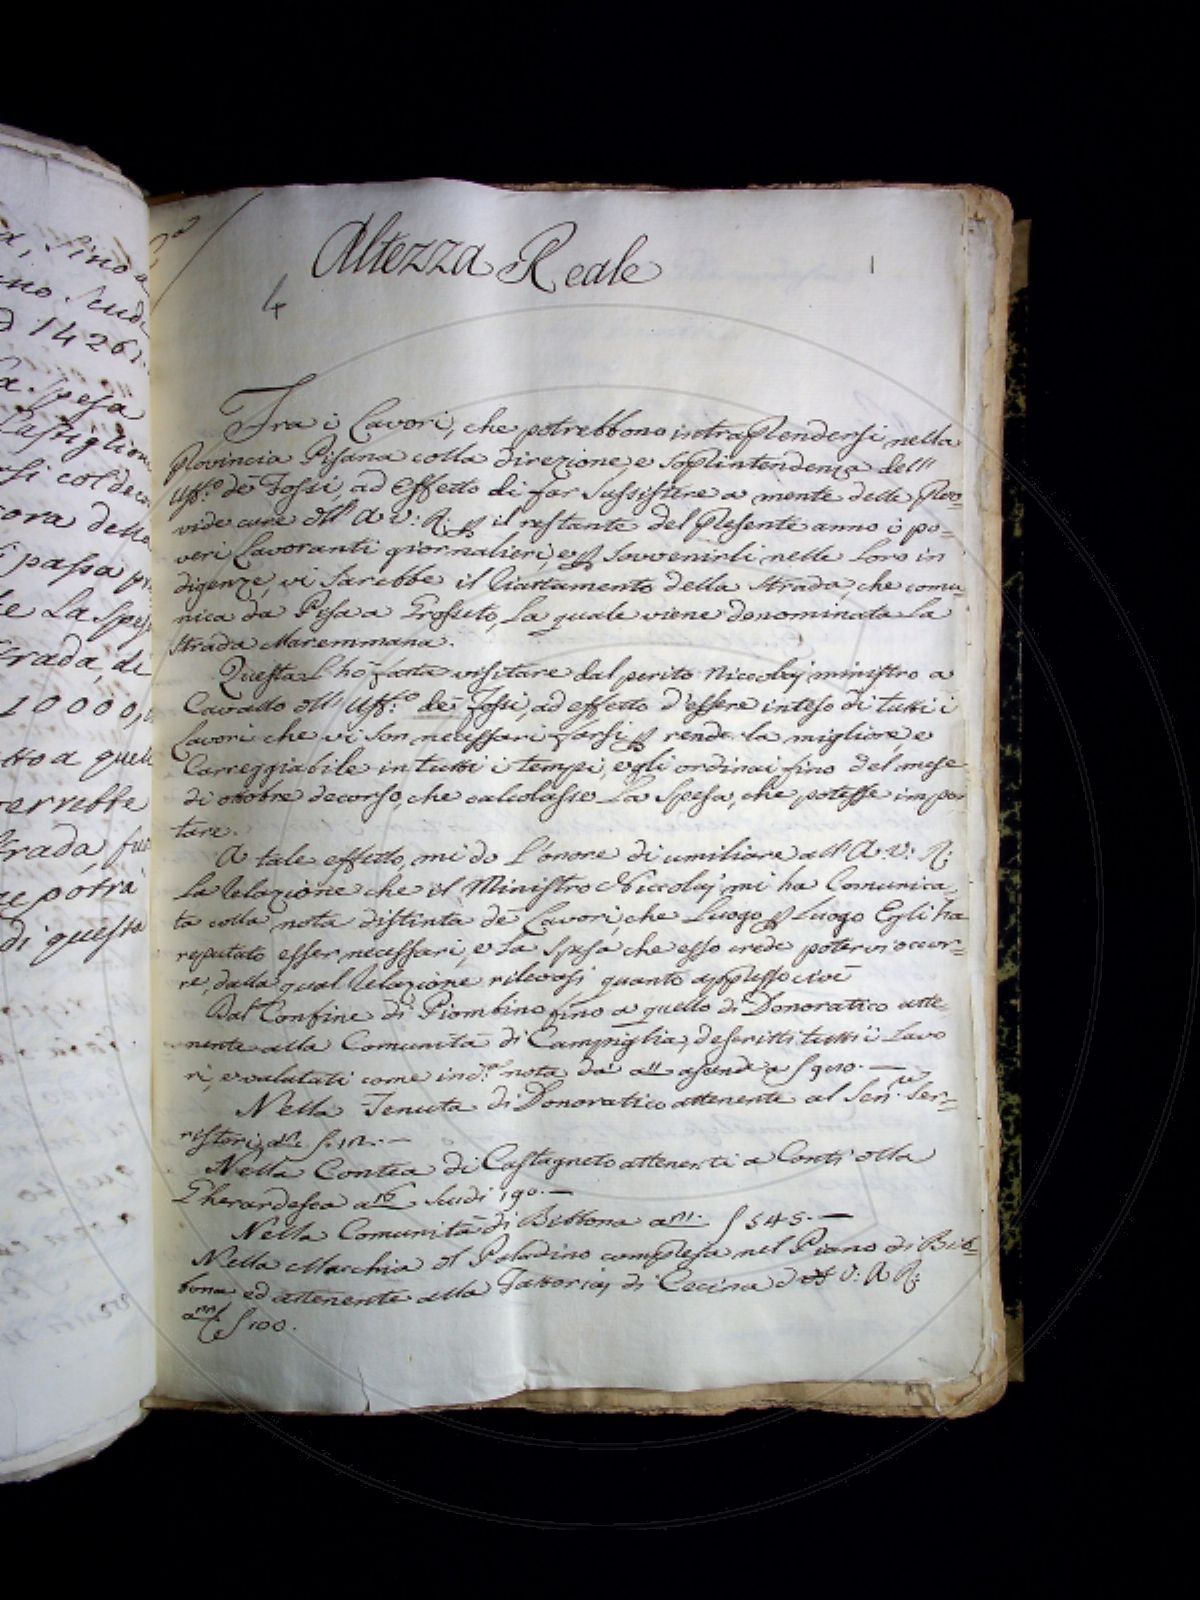 a, Sino a
ino Scudi
1426
a spesa
Castiglion
rsi col deco
cora della
passa p
le La Spesa
Strada, di
10000
tto a quell
verrebbe
Strada, fu
potrà
di questa
Altezza Reale
1
4
Fra i Lavori, che potrebbono intraprendersi nella
Provincia Pisana colla direzione, e Soprintendenza dell'
Uff.o de' Fossi, ad Effetto di far Sussistere a mente delle Prov-
vide cure dll' A. V: R: p il restante del presente anno i po-
veri Lavoranti giornalieri, e p Sovvenirli nelle Loro in
digenze, vi Sarebbe il Riattamento della Strada, che comu-
nica da Pisa a Grosseto, La quale viene denominata La
Strada Maremmana.
Questa L'hò fatta visitare dal perito Niccolaj ministro a
Cavallo dll' Uff.o de' Fossi, ad effetto d'essere inteso di tutti i
Lavori che vi Son necessari farsi p renderla migliore, e
Carreggiabile in tutti i tempi, e gli ordinai fino del mese
di ottobre decorso, che calcolasse La Spesa, che potesse impor
tare.
A tale effetto, mi do L'onore di umiliare all' A: V: R:
La Relazione che il Ministro Niccolaj mi ha Comunica-
ta colla nota distinta de' Lavori, che Luogo p Luogo Egli ha
reputato esser necessari, e La Spesa che esso crede potervi occor-
re, dalla qual Relazione rilevasi quanto appresso cioè
Dal Confine di Piombino fino a quello di Donoratico atte-
nente alla Comunità di Campiglia, descritti tutti i Lavo
ri, e valutati come in d.a nota da' ascende a
Nella Tenuta di Donoratico attenente al Sen.re Ser-
ristori,
Nella Contea di Castagneto attenenti a Conti dlla
Gherardesca a 16 Scudi 190.—
Nella Comunità di Bibbona a m. S 545.—
Nella Macchia dl Paladino compresa nel Piano di Bib-
bona ed attenente alla Fattoria di Cecina d V: A R:
S 100.